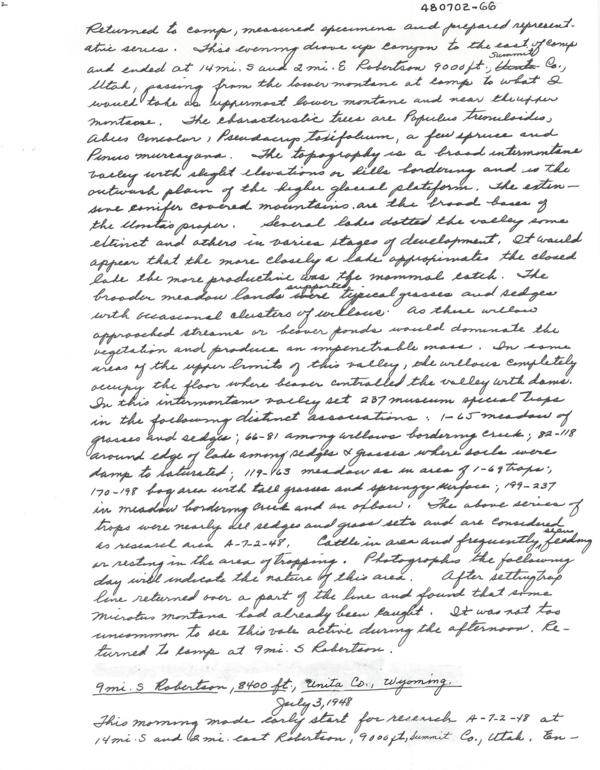 2
480702-66
Returned to camp, measured specimens and prepared represent-
ative series. This evening drove up canyon to the east of camp
and ended at 14 mi. S and 2 mi. E Robertson 9000 ft., Uinta Summit Co.,
Utah, passing from the lower montane at camp to what I
would take as uppermost lower montane and near the upper
montane. The characteristic trees are Populus tremuloides,
Abies concolor, Pseudasup taxifolium, a few spruce and
Pinus murrayana. The topography is a broad intermontane
valley with slight elevations or hills bordering and is the
outwash plain of the higher glacial platform. The exten-
sive conifer covered mountains are the broad bases of
the Uintas proper. Several lakes dotted the valley some
extinct and others in varies stages of development. It would
appear that the more closely a lake approximates the closed
lake the more productive was the mammal catch. The
broader meadow lands were supported typical grasses and sedges
with occasional clusters of willows. As these willow
approached streams or beaver ponds would dominate the
vegetation and produce an impenetrable mass. In some
areas of the upper limits of this valley, the willows completely
occupy the floor where beaver controlled the valley with dams.
In this intermontane valley set 237 museum special traps
in the following distinct associations: 1-65 meadow of
grasses and sedges; 66-81 among willows bordering creek; 82-118
around edge of lake among sedges & grasses where soils were
damp to saturated; 119-163 meadow as in area of 1-69 traps;
170-198 bog area with tall grasses and springy surface; 199-237
in meadow bordering creek and an oflow. The above series of
traps were nearly all sedges and grass sets and are considered
as research area A-7-2-48. Cattle in area and frequently seen feeding
or resting in the area of trapping. Photographs the following
day will indicate the nature of this area. After setting trap
line returned over a part of the line and found that some
Microtus montana had already been caught. It was not too
uncommon to see this vole active during the afternoon. Re-
turned to camp at 9 mi. S Robertson.
9 mi. S Robertson, 8400 ft., Unita Co., Wyoming.
July 3, 1948
This morning made early start for research A-7-2-48 at
14 mi. S and 2 mi. east Robertson, 9000 ft, Summit Co., Utah. En-